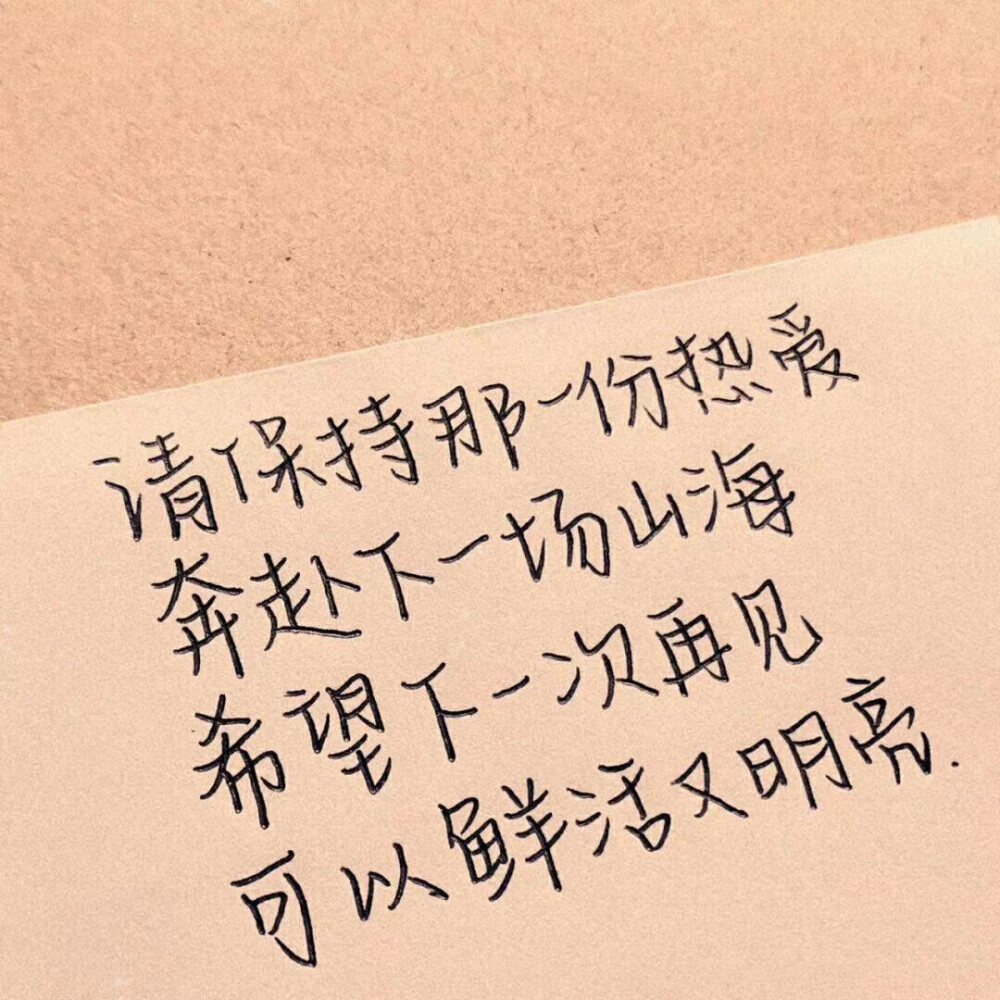 请保持那一份热爱
奔赴下一场山海
希望下一次再见
可以鲜活又明亮.